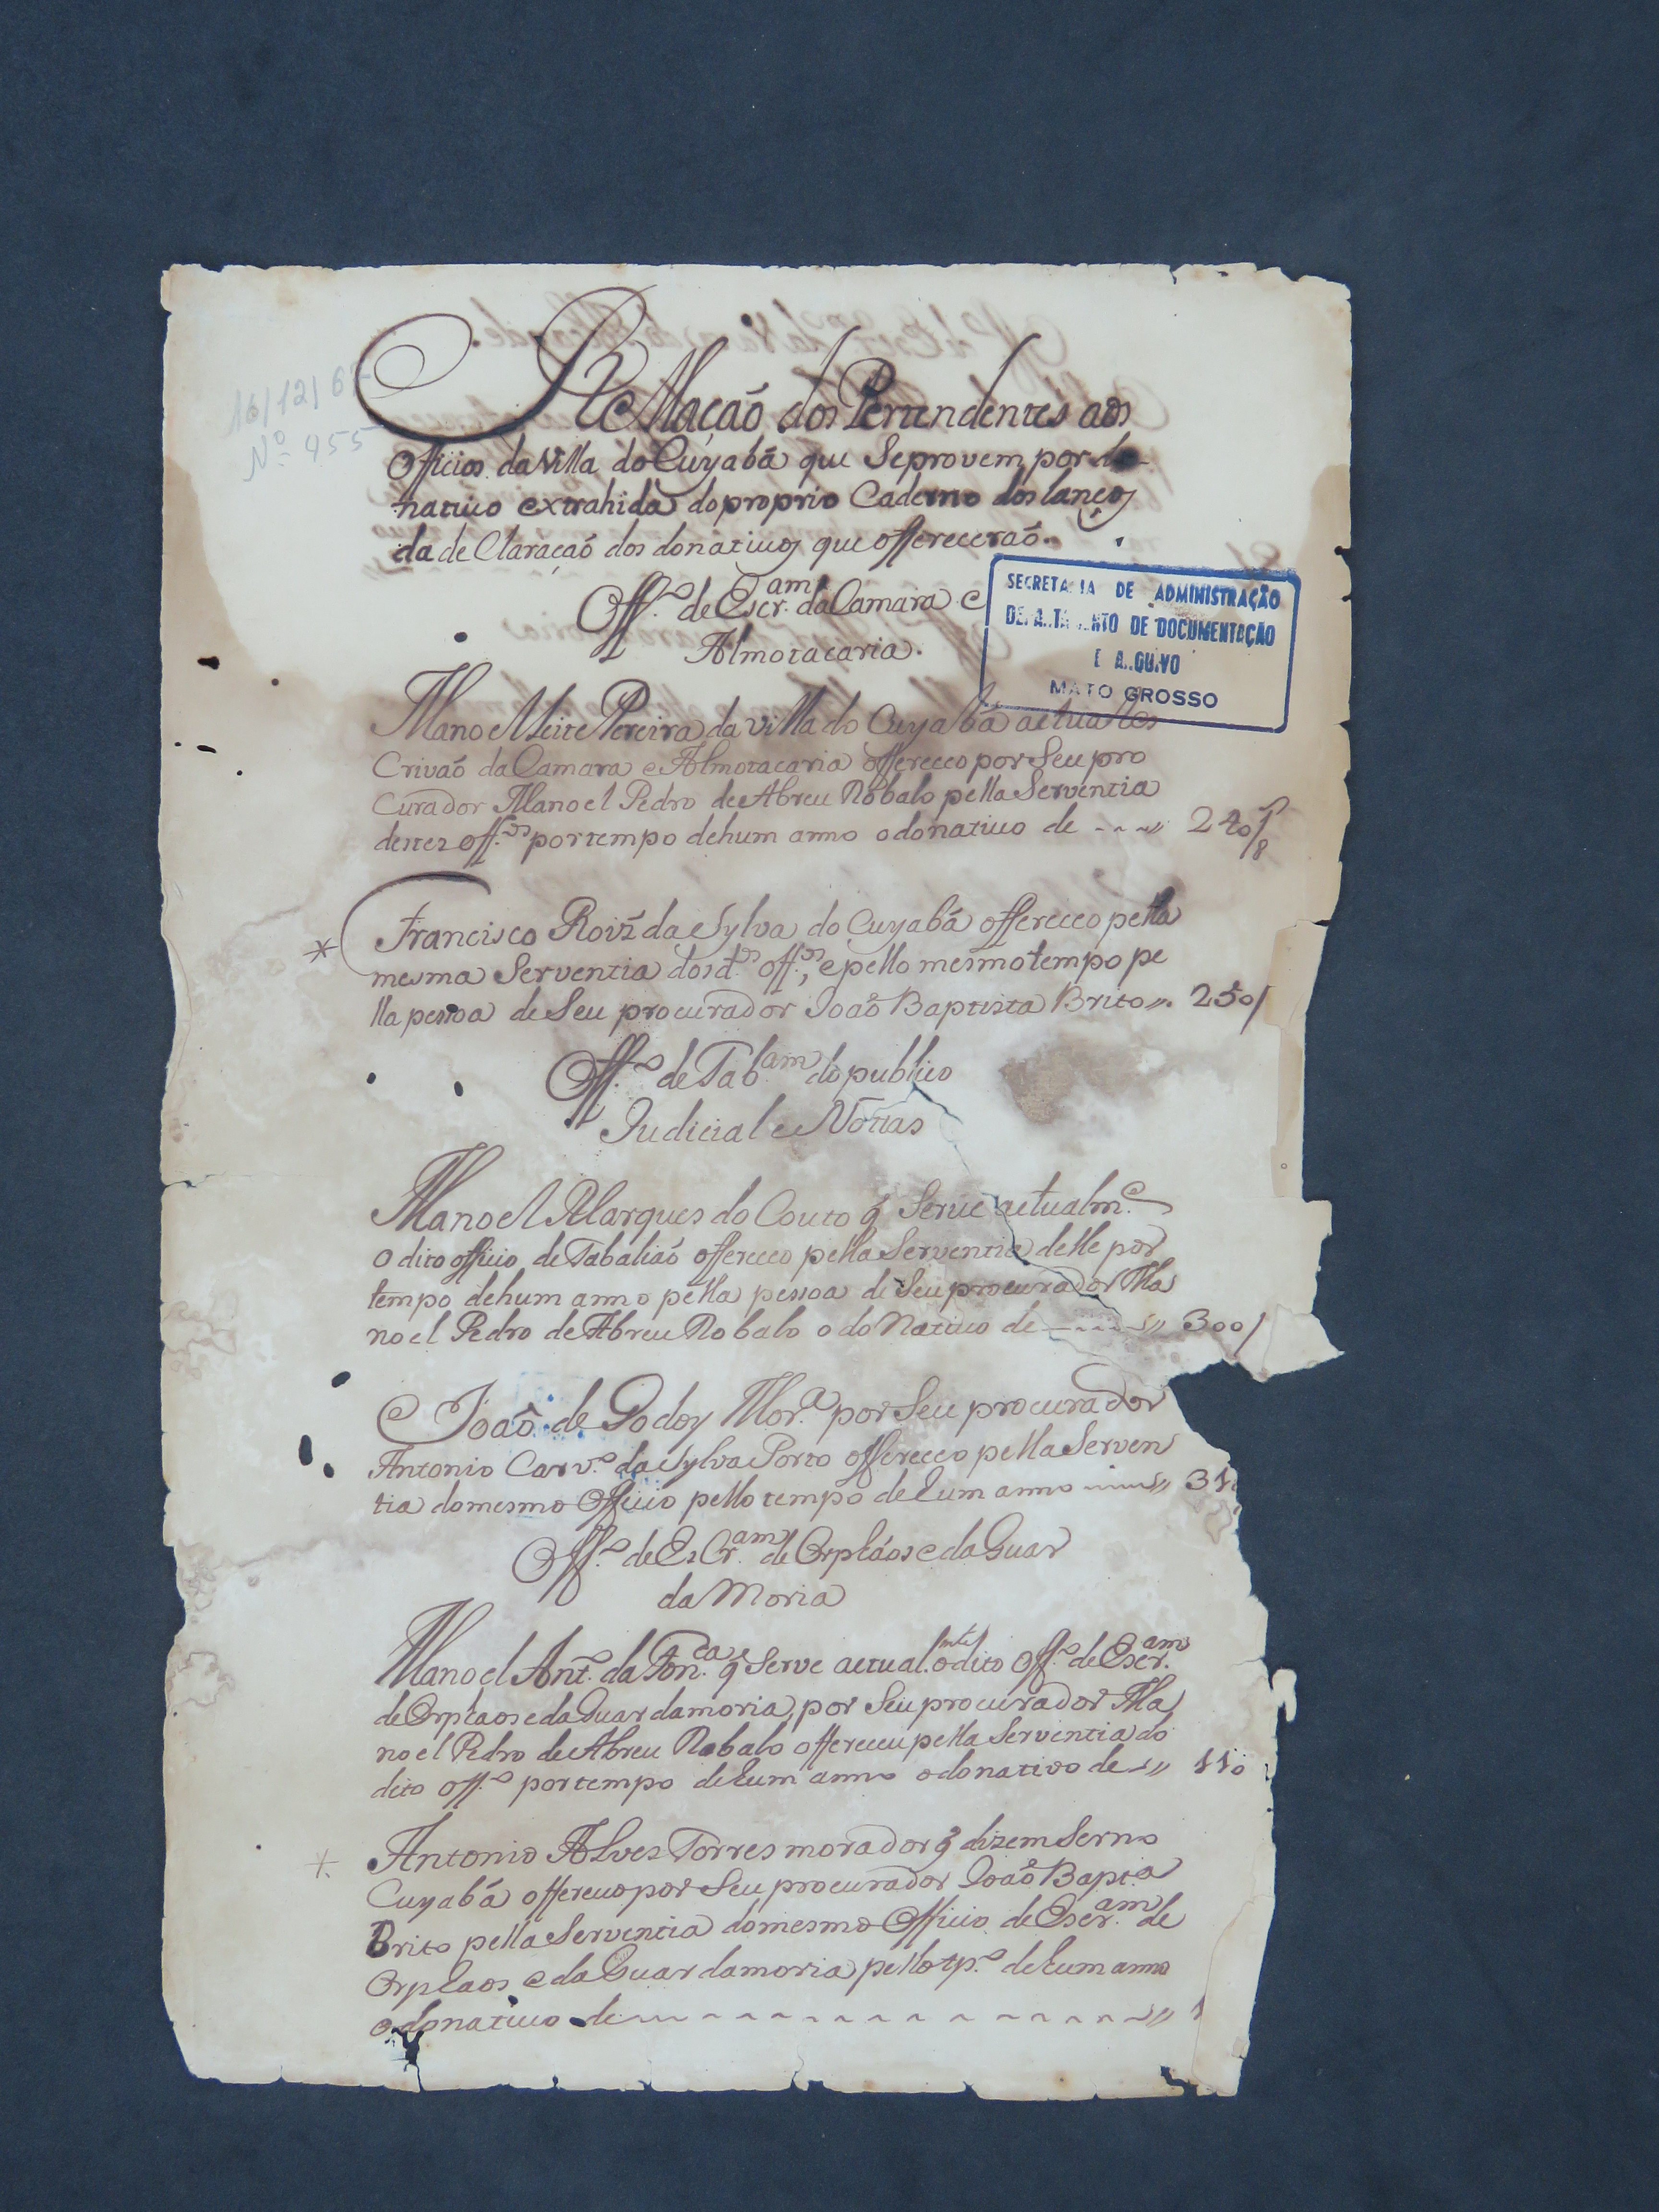 16/12/6
Nº 955
Rellação dos Pertendentes aos
Officios da Villa do Cuyabá que Seprovem por do-
nativo extrahida do proprio Caderno dos lanços
da de Claração dos donativos que offerecerão.
Off.º de Escr.am da Camara e
Almotacaria.
SECRETA IA DE ADMINISTRAÇÃO
DEPA.TA..NTO DE DOCUMENTAÇÃO
E A..QUIVO
MATO GROSSO
Manoel Leite Pereira da villa do Cuyabá actual Es
Crivaõ da Camara e Almotacaria offereceo por Seu pro
Curador Manoel Pedro de Abreu Robalo pella Serventia
destes off.os por tempo dehum anno o donativo de ---// 240/8
* Francisco Roiz da Sylva do Cuyabá offereceo pella
mesma Serventia dos d.os off.os, e pello mesmo tempo pe
lla pessoa de Seu procurador Joaõ Baptista Brito //. 250/
Off.º de Tab.am do publico
Judicial e Nottas
Manoel Marques do Couto q̃ Serve actualm.e
o dito officio de Tabaliaõ offereceo pella Serventia delle por
tempo dehum anno pella pessoa de Seu procurador Ma
noel Pedro de Abreu Robalo o do Nativo de ----// 300/
Joaõ de Godoy Mor.a por Seu procurador
Antonio Carv.º da Sylva Porto offereceo pella Serven
tia do mesmo Officio pello tempo de hum anno ---// 31
Off.º de EsCr.am de Orphãos e da Guar
da Moria
Manoel Ant.º da Fon.ca q̃ Serve actual.mte o dito Off.º de Escr.am
de Orphaos e da Guardamoria, por Seu procurador Ma
noel Pedro de Abreu Robalo offereceu pella Serventia do
dito off.º por tempo de hum anno o donativo de // 110
* Antonio Alves Torres morador q̃ dizem Ser no
Cuyabá offereceo por Seu procurador Joaõ Bapt.a
Brito pella Serventia do mesmo Officio de Escr.am de
Orphaos e da Guardamoria pello tp.º de hum anno
o donativo de ---------------// 1